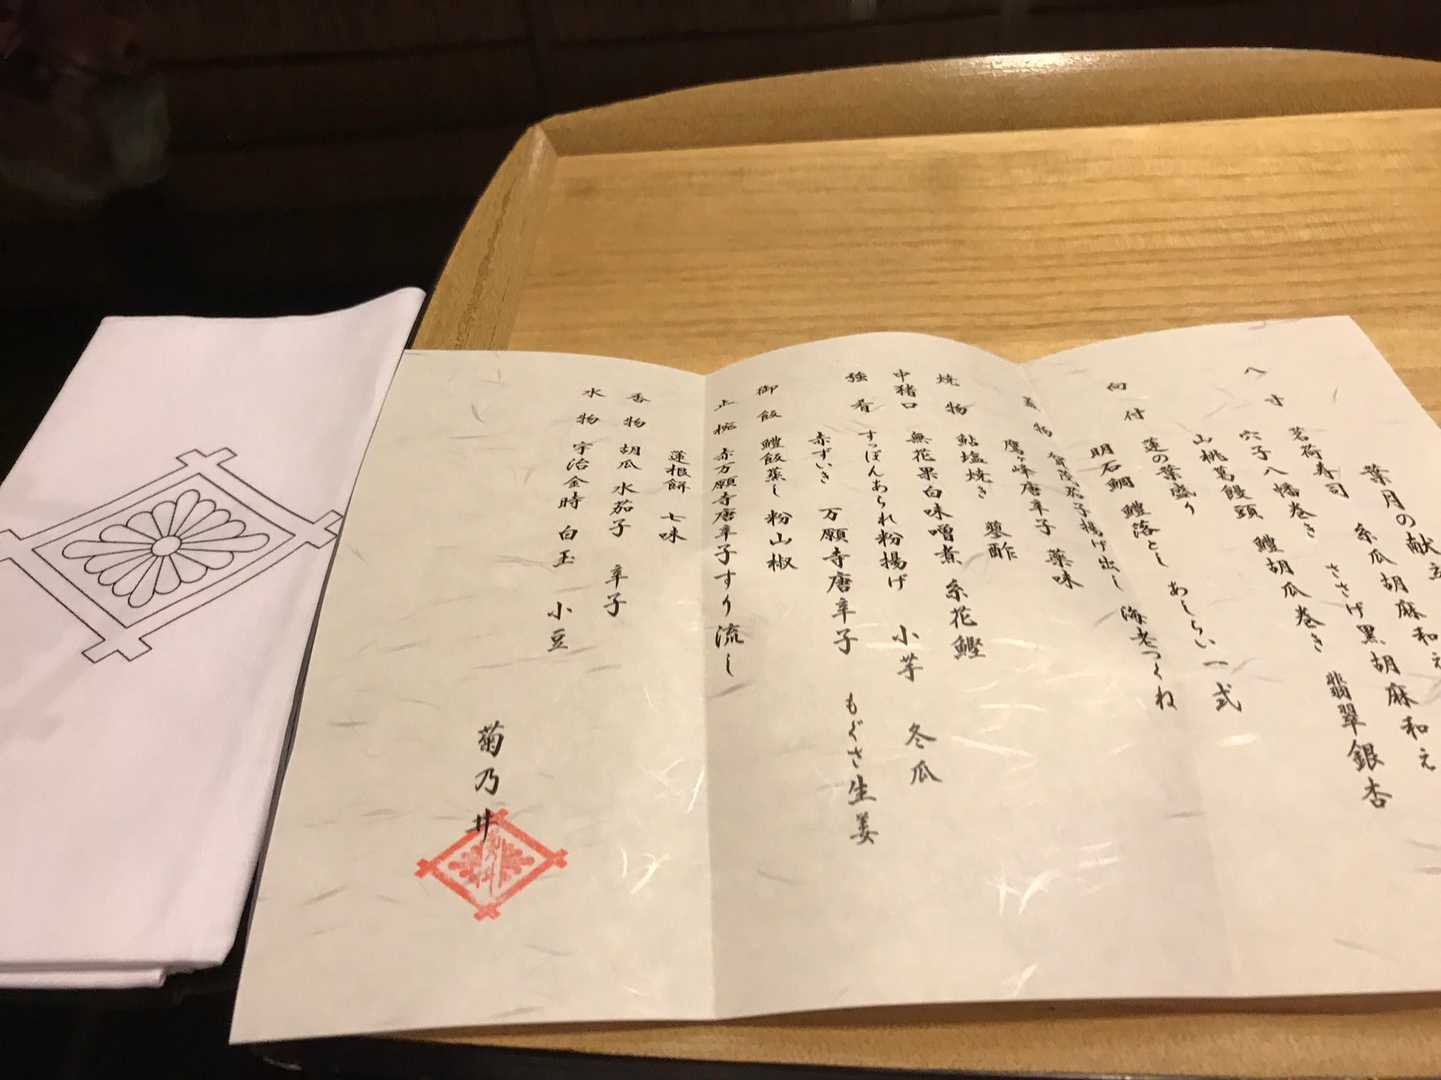 葉月の献立
八寸 茗荷寿司 糸瓜胡麻和え
穴子八幡巻き ささげ黒胡麻和え
山桃葛饅頭 鱧胡瓜巻き 翡翠銀杏
蓮の葉盛り
向付 明石鯛 鱧落とし あしらい一式
蓋物 賀茂茄子揚げ出し 海老つくね
鷹ヶ峰唐辛子 薬味
焼物 鮎塩焼き 蓼酢
中猪口 無花果白味噌煮 糸花鰹
強肴 すっぽんあられ粉揚げ 小芋 冬瓜
赤ずいき 万願寺唐辛子 もぐさ生姜
御飯 鱧飯蒸し 粉山椒
止椀 赤万願寺唐辛子すり流し
蓮根餅 七味
香物 胡瓜 水茄子 辛子
水物 宇治金時 白玉 小豆
菊乃井